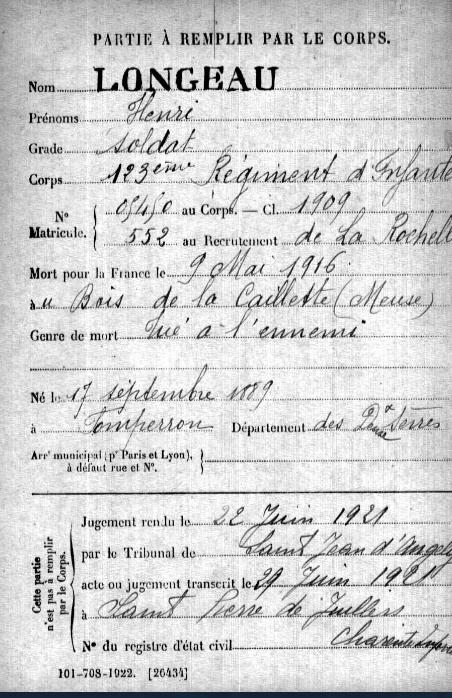 PARTIE À REMPLIR PAR LE CORPS.
Nom LONGEAU
Prénoms Henri
Grade soldat
Corps 123ème Régiment d'Infante
N° Matricule. { 05450 au Corps. — Cl. 1909
552 au Recrutement de La Rochell
Mort pour la France le 9 Mai 1916
à u Bois de la Caillette (Meuse)
Genre de mort Tué à l'ennemi
Né le 17 septembre 1889
à Pomperron Département des Deux Sèvres
Arrt municipal (pr Paris et Lyon), à défaut rue et N°. }
Cette partie n'est pas à remplir par le Corps. {
Jugement rendu le 22 Juin 1921
par le Tribunal de Saint Jean d'Angely
acte ou jugement transcrit le 29 Juin 1921
à Saint Pierre de Juillers
N° du registre d'état civil Charente Infre
101-708-1922. [26434]